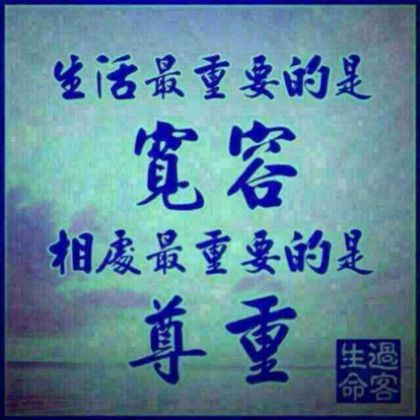 生活最重要的是
寬容
相處最重要的是
尊重
過客
生命